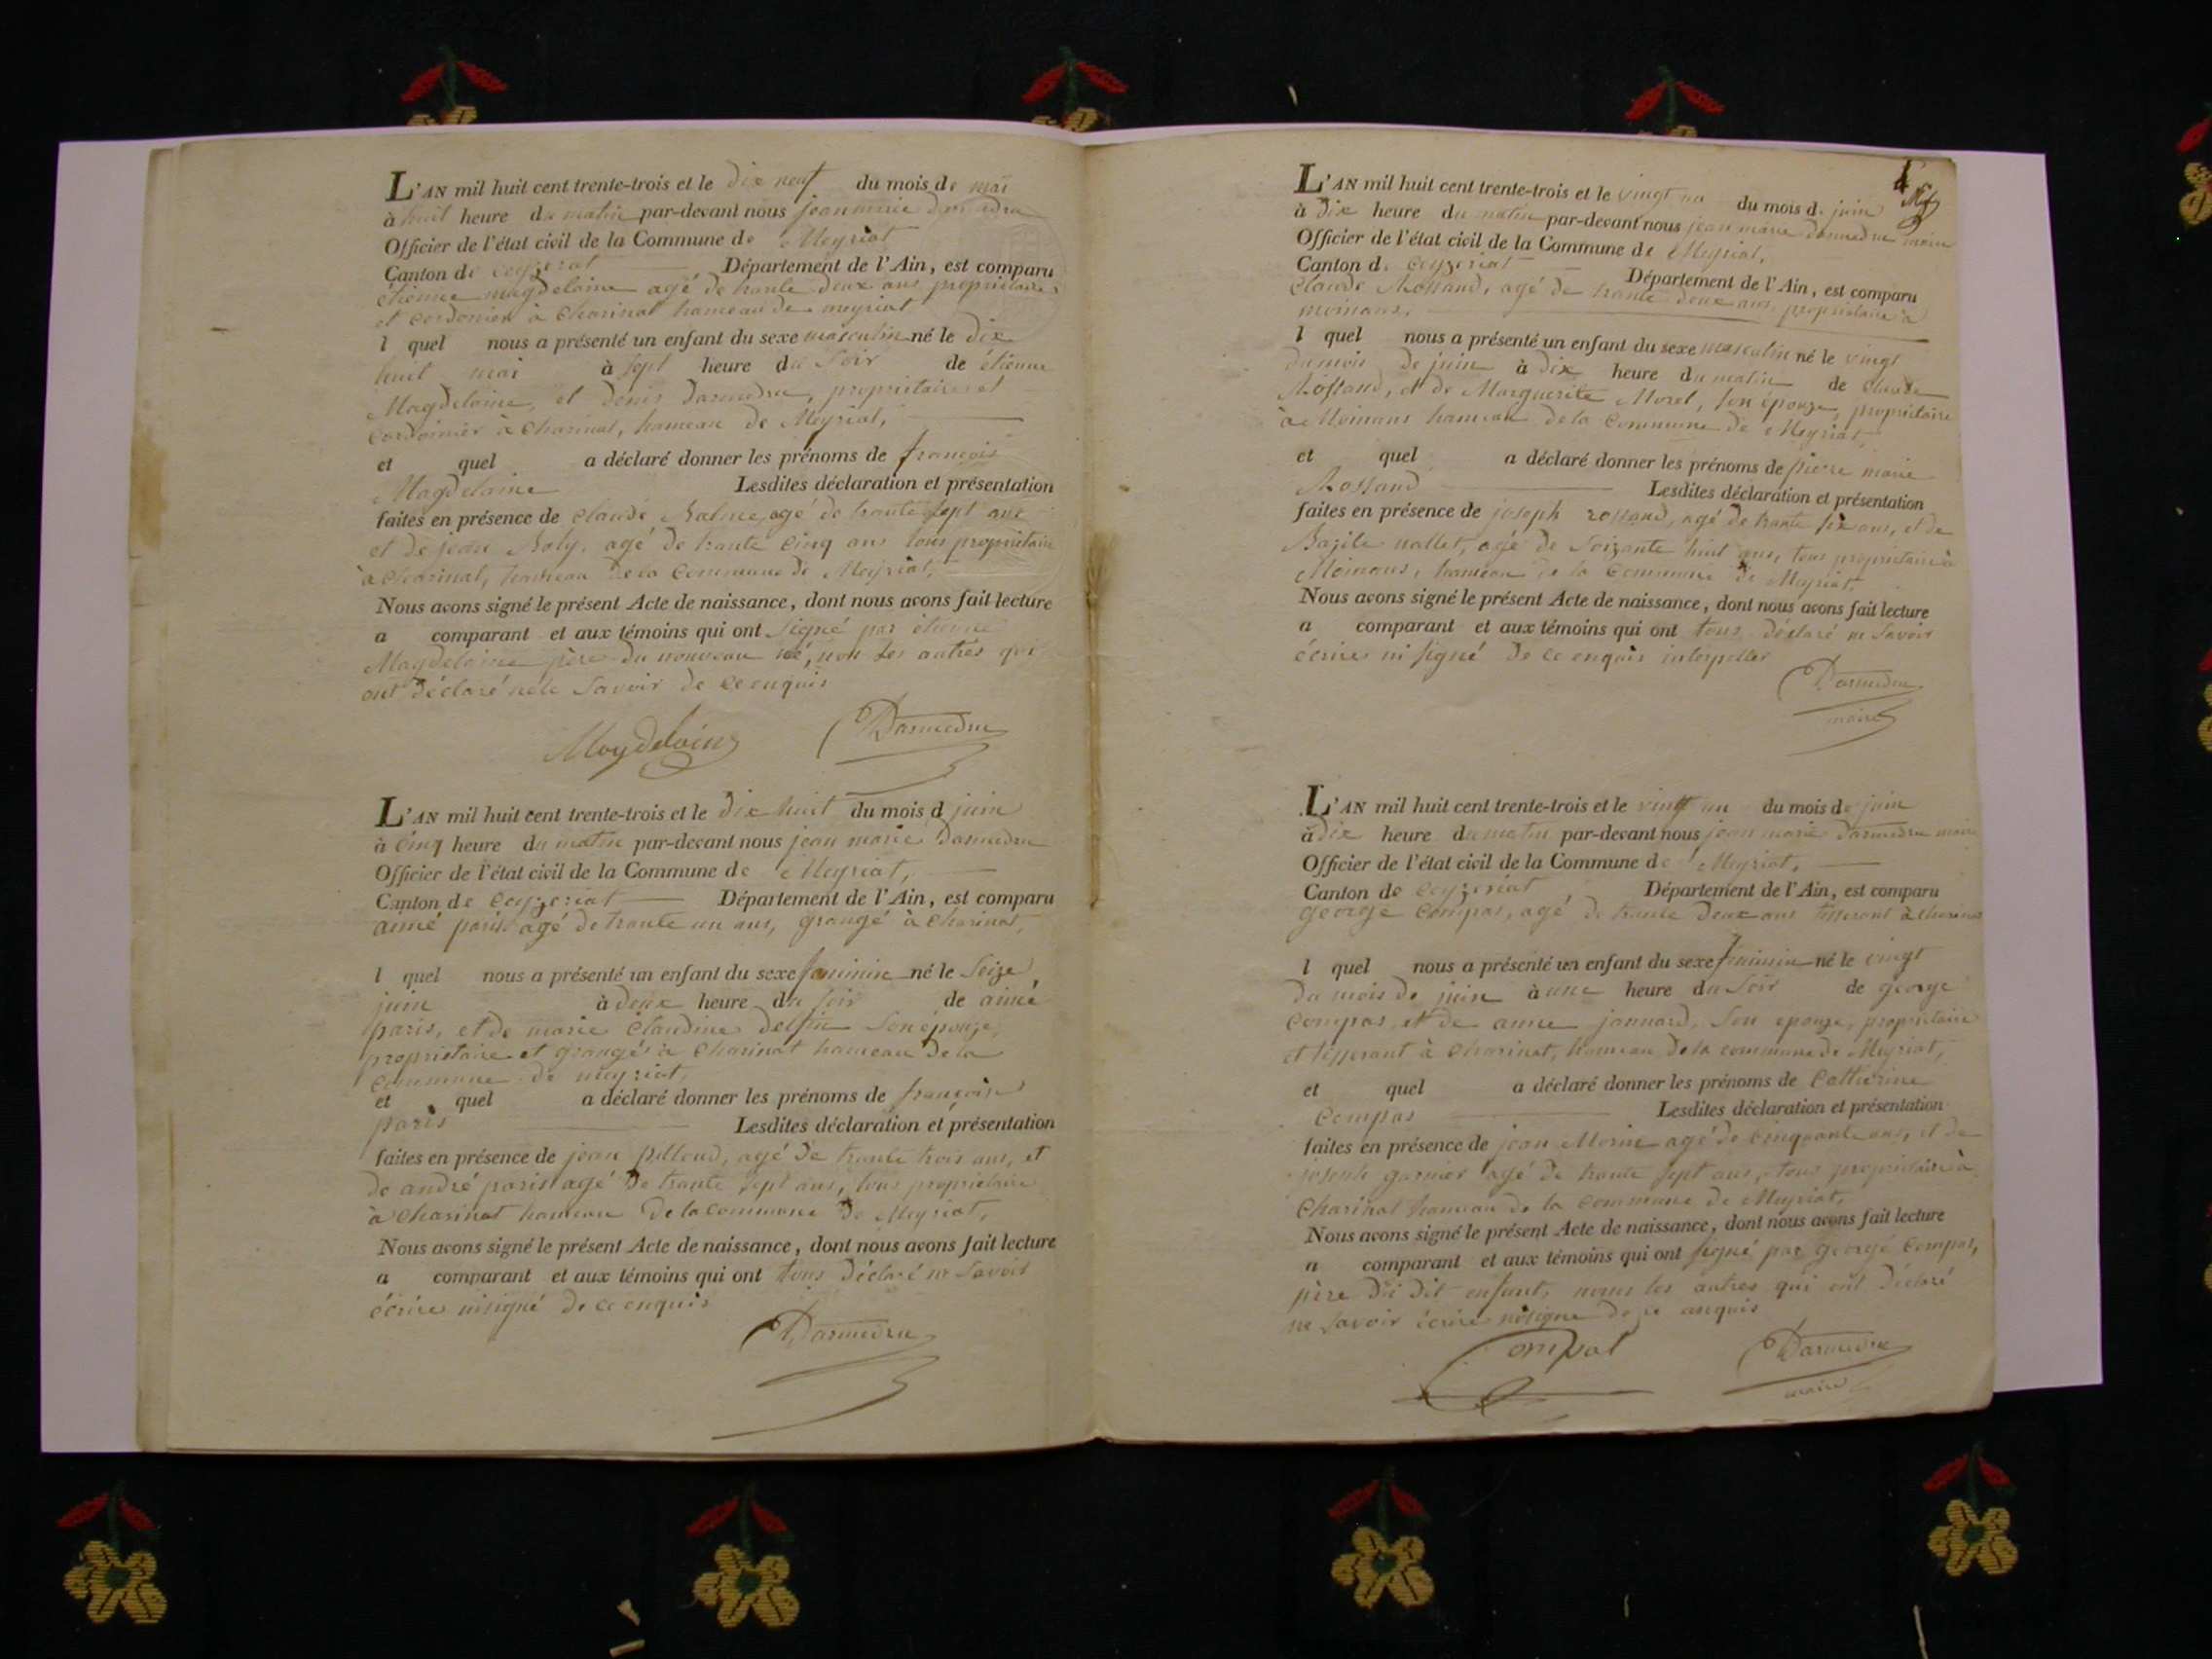 L'AN mil huit cent trente-trois et le dix neuf du mois de mai
à huit heure du matin par-devant nous jean marie darmedru
Officier de l'état civil de la Commune de Meyriat
Canton de ceyzeriat Département de l'Ain, est comparu
étienne magdelaine agé de trante deux ans propriétaire
et cordonier à Charinat hameau de meyriat
l quel nous a présenté un enfant du sexe masculin né le dix
huit mai à sept heure du soir de étienne
Magdelaine, et denis darmedru, propriétaire et
cordonnier à Charinat, hameau de Meyriat,
et quel a déclaré donner les prénoms de françois
Magdelaine Lesdites déclaration et présentation
faites en présence de claude Balme, agé de trante sept ans
et de jean Boly, agé de trante cinq ans tous propriétaire
à Charinat, hameau de la Commune de Meyriat,
Nous avons signé le présent Acte de naissance, dont nous avons fait lecture
a comparant et aux témoins qui ont signé par étienne
Magdelaine père du nouveau né, non les autres qui
ont déclaré ne le savoir de ce enquis
Magdelaine Darmedru
L'AN mil huit cent trente-trois et le dix huit du mois d juin
à cinq heure du matin par-devant nous jean marie Darmedru
Officier de l'état civil de la Commune de Meyriat,
Canton de Ceyzeriat Département de l'Ain, est comparu
aimé paris agé de trante un ans, grangé à Charinat,
l quel nous a présenté un enfant du sexe feminin né le seize
juin à deux heure du soir de aimé
paris, et de marie Claudine delfin son épouze,
propriétaire et grangé à Charinat hameau de la
commune de meyriat,
et quel a déclaré donner les prénoms de françoise
paris Lesdites déclaration et présentation
faites en présence de jean pilloud, agé de trante trois ans, et
de andré paris agé de trante sept ans, tous propriétaire
à Charinat hameau de la commune de Meyriat,
Nous avons signé le présent Acte de naissance, dont nous avons fait lecture
a comparant et aux témoins qui ont tous déclaré ne savoir
écrire ni signé de ce enquis
Darmedru
L'AN mil huit cent trente-trois et le vingt un du mois d. juin
à dix heure du matin par-devant nous jean marie darmedru maire
Officier de l'état civil de la Commune de Meyriat,
Canton d. Ceyzeriat Département de l'Ain, est comparu
Claude Rossand, agé de trante deux ans, propriétaire à
moinans,
l quel nous a présenté un enfant du sexe masculin né le vingt
du mois de juin à dix heure du matin de claude
Rossand, et de Marguerite Morel, son épouze, propriétaire
à Moinans hameau de la Commune de Meyriat,
et quel a déclaré donner les prénoms de pierre marie
Rossand Lesdites déclaration et présentation
faites en présence de joseph rossand, agé de trante six ans, et de
Bazile nallet, agé de soizante huit ans, tous propriétaire à
Moinans, hameau de la Commune de Meyriat,
Nous avons signé le présent Acte de naissance, dont nous avons fait lecture
a comparant et aux témoins qui ont tous déclaré ne savoir
écrire ni signé de ce enquis interpeller
Darmedru
maire
L'AN mil huit cent trente-trois et le vingt un du mois de juin
à dix heure du matin par-devant nous jean marie Darmedru maire
Officier de l'état civil de la Commune de Meyriat,
Canton de Ceyzeriat Département de l'Ain, est comparu
george Compas, agé de trante deux ans tisserant à charinat
l quel nous a présenté un enfant du sexe feminin né le vingt
du mois de juin à une heure du soir de george
Compas, et de anne jannard, son epouze, propriétaire
et tisserant à Charinat, hameau de la commune de Meyriat,
et quel a déclaré donner les prénoms de Catherine
Compas Lesdites déclaration et présentation
faites en présence de jean Morin agé de cinquante ans, et de
joseph garnier agé de trante sept ans, tous propriétaire à
Charinat hameau de la commune de Meyriat,
Nous avons signé le présent Acte de naissance, dont nous avons fait lecture
a comparant et aux témoins qui ont signé par george Compas,
père du dit enfant, nous les autres qui ont déclaré
ne savoir écrire ni signe de ce enquis
Compat Darmedru
maire